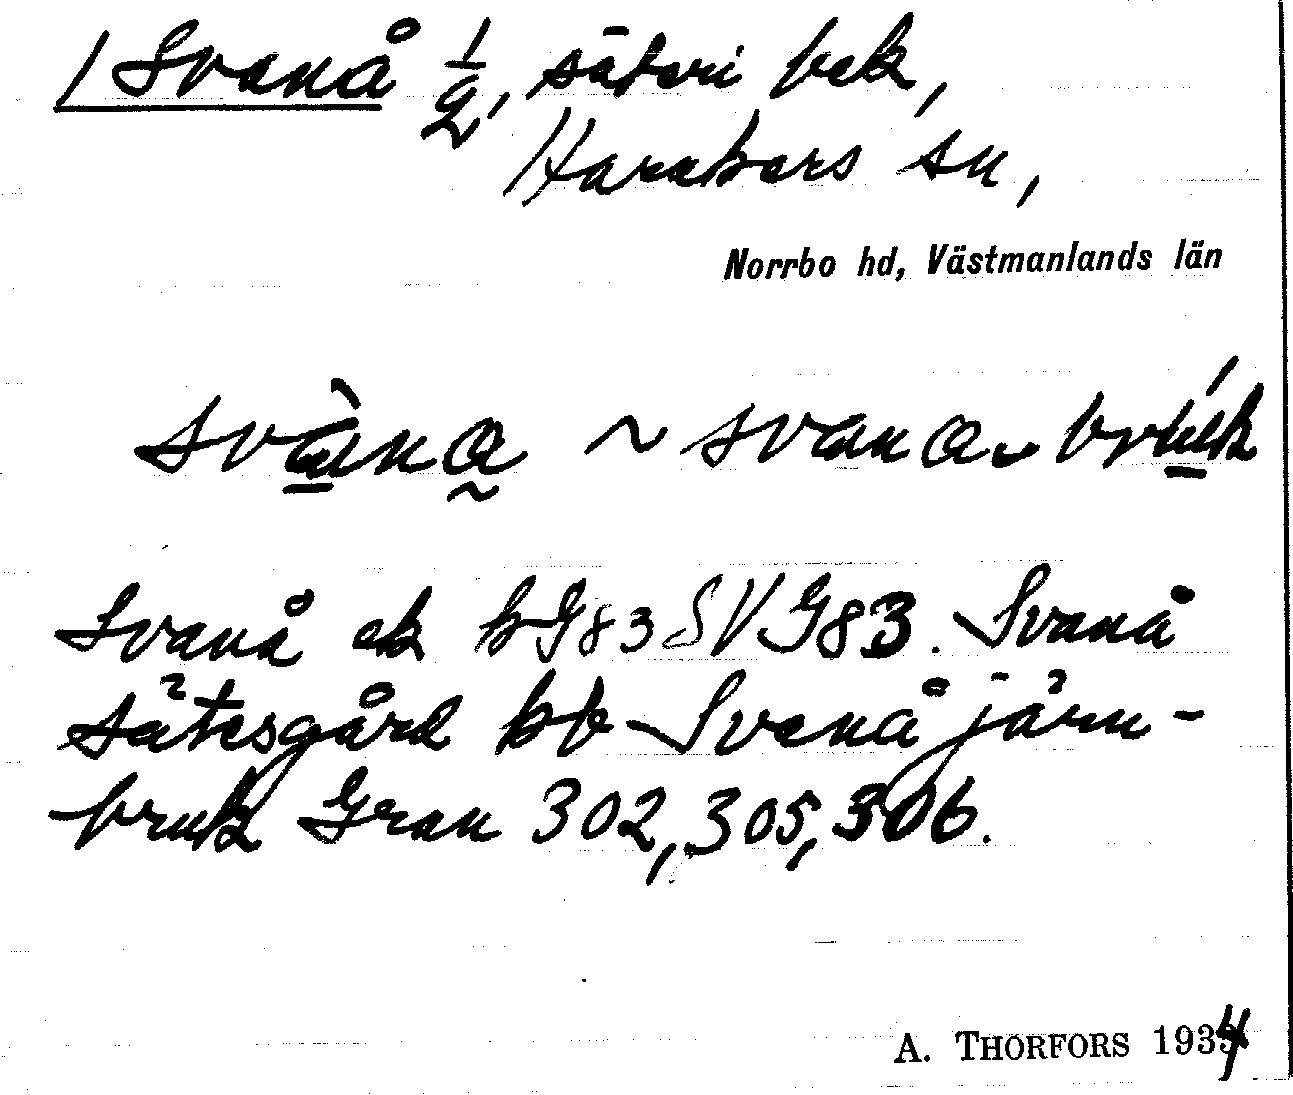 1 Svanå 1/2, säteri bek,
Haraker​s sn,
Norrbo hd, Västmanlands län
svàna ~ svana‿brúk
Svanå ek kG83SVG83. Svanå
sätesgård bb Svanå järn-
bruk Gran 302, 305, 306.
A. THORFORS 1934